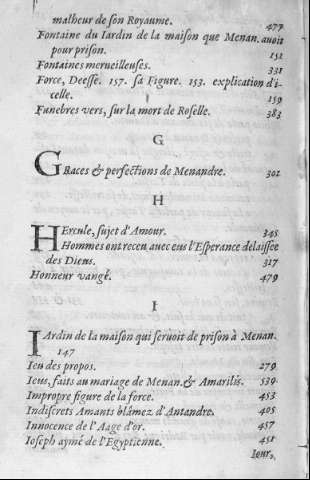 malheur de son Royaume. 477
Fontaine du Iardin de la maison que Menan. auoit
pour prison. 151
Fontaines merueilleuses. 331
Force, Deesse. 157. sa Figure. 153. explication d'i-
celle. 159
Funebres vers, sur la mort de Roselle. 383
G
GRaces & perfections de Menandre. 302
H
HErcule, sujet d'Amour. 345
Hommes ont receu auec eus l'Esperance delaissée
des Dieus. 327
Honneur vangé. 479
I
IArdin de la maison qui seruoit de prison à Menan.
147
Ieu des propos. 279
Ieus, faits au mariage de Menan. & Amarilis. 539
Impropre figure de la force. 453
Indiscrets Amants blámez d'Antandre. 405
Innocence de l'Aage d'or. 457
Ioseph aymé de l'Egyptienne. 451
Iours,